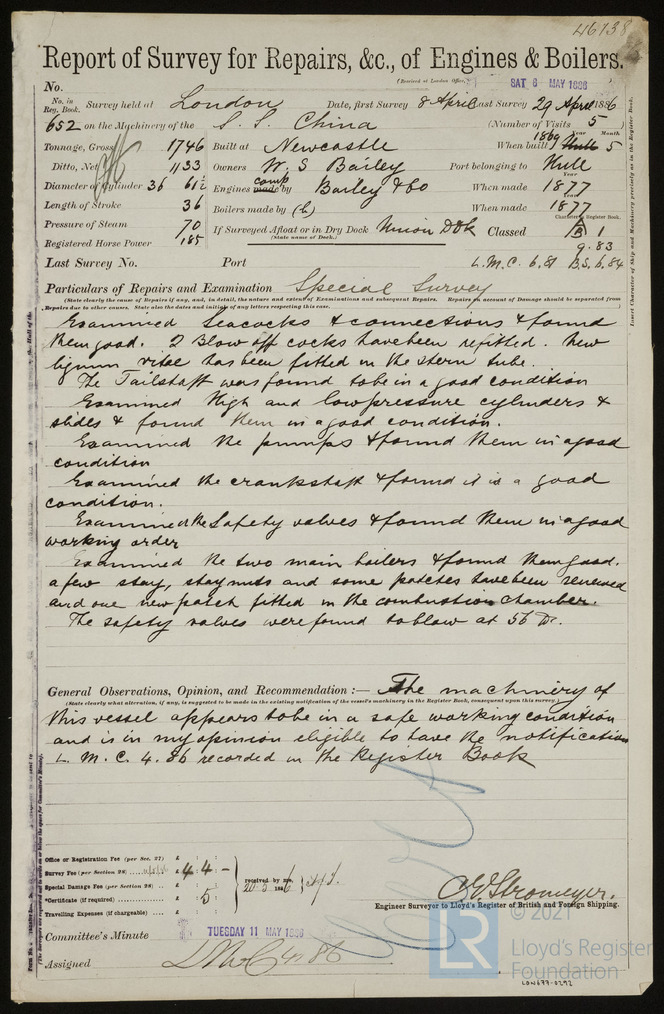 46738
Report of Survey for Repairs, &c., of Engines & Boilers.
(Received at London Office, SAT 8 MAY 1886 )
No.
No. in Reg. Book. Survey held at London Date, first Survey 8 April Last Survey 29 April 1886
652 on the Machinery of the S. S. China (Number of Visits 5)
Tonnage, Gross 1746 Built at Newcastle When built 1869 5
Ditto, Net 1133 Owners W. S. Bailey Port belonging to Hull
Diameter of Cylinder 36 61½ Engines comp made by Bailey & Co When made 1877
Length of Stroke 36 Boilers made by (h) When made 1877
Pressure of Steam 70 If Surveyed Afloat or in Dry Dock Union Dock Classed A B 1
(State name of Dock.)
Registered Horse Power 185 9.83
Last Survey No. Port L.M.C. 6.81 B.S. 6.84
Particulars of Repairs and Examination Special Survey
(State clearly the cause of Repairs if any, and, in detail, the nature and extent of Examinations and subsequent Repairs. Repairs on account of Damage should be separated from
Repairs due to other causes. State also the dates and initials of any letters respecting this case.)
Examined Seacocks & connections & found
them good. 2 Blow off cocks have been refitted. New
lignum vitae has been fitted in the stern tube.
The Tailshaft was found to be in a good condition
Examined High and low pressure cylinders &
slides & found them in a good condition.
Examined the pumps & found them in a good
condition
Examined the crankshaft & found it is a good
condition.
Examined the Safety valves & found them in a good
working order
Examined the two main boilers & found them good.
a few stay, stay nuts and some patches have been renewed
and one new patch fitted in the combustion chamber.
The safety valves were found to blow at 56 lb.
General Observations, Opinion, and Recommendation :— The machinery of
(State clearly what alteration, if any, is suggested to be made in the existing notification of the vessel's machinery in the Register Book, consequent upon this survey.)
this vessel appears to be in a safe working condition
and is in my opinion eligible to have the notification
L. M. C. 4.86 recorded in the Register Book
Office or Registration Fee (per Sec. 27) £ : :
Survey Fee (per Section 28) £ 4 : 4 : —
Special Damage Fee (per Section 28) £ : :
*Certificate (if required) £ : 5 :
Travelling Expenses (if chargeable) £ : :
received by me, 20.5 1886
C. E. Stromeyer.
Engineer Surveyor to Lloyd's Register of British and Foreign Shipping.
Committee's Minute TUESDAY 11 MAY 1886
Assigned LMC 4.86
© 2021
LR
Lloyd's Register
Foundation
LON677-0292